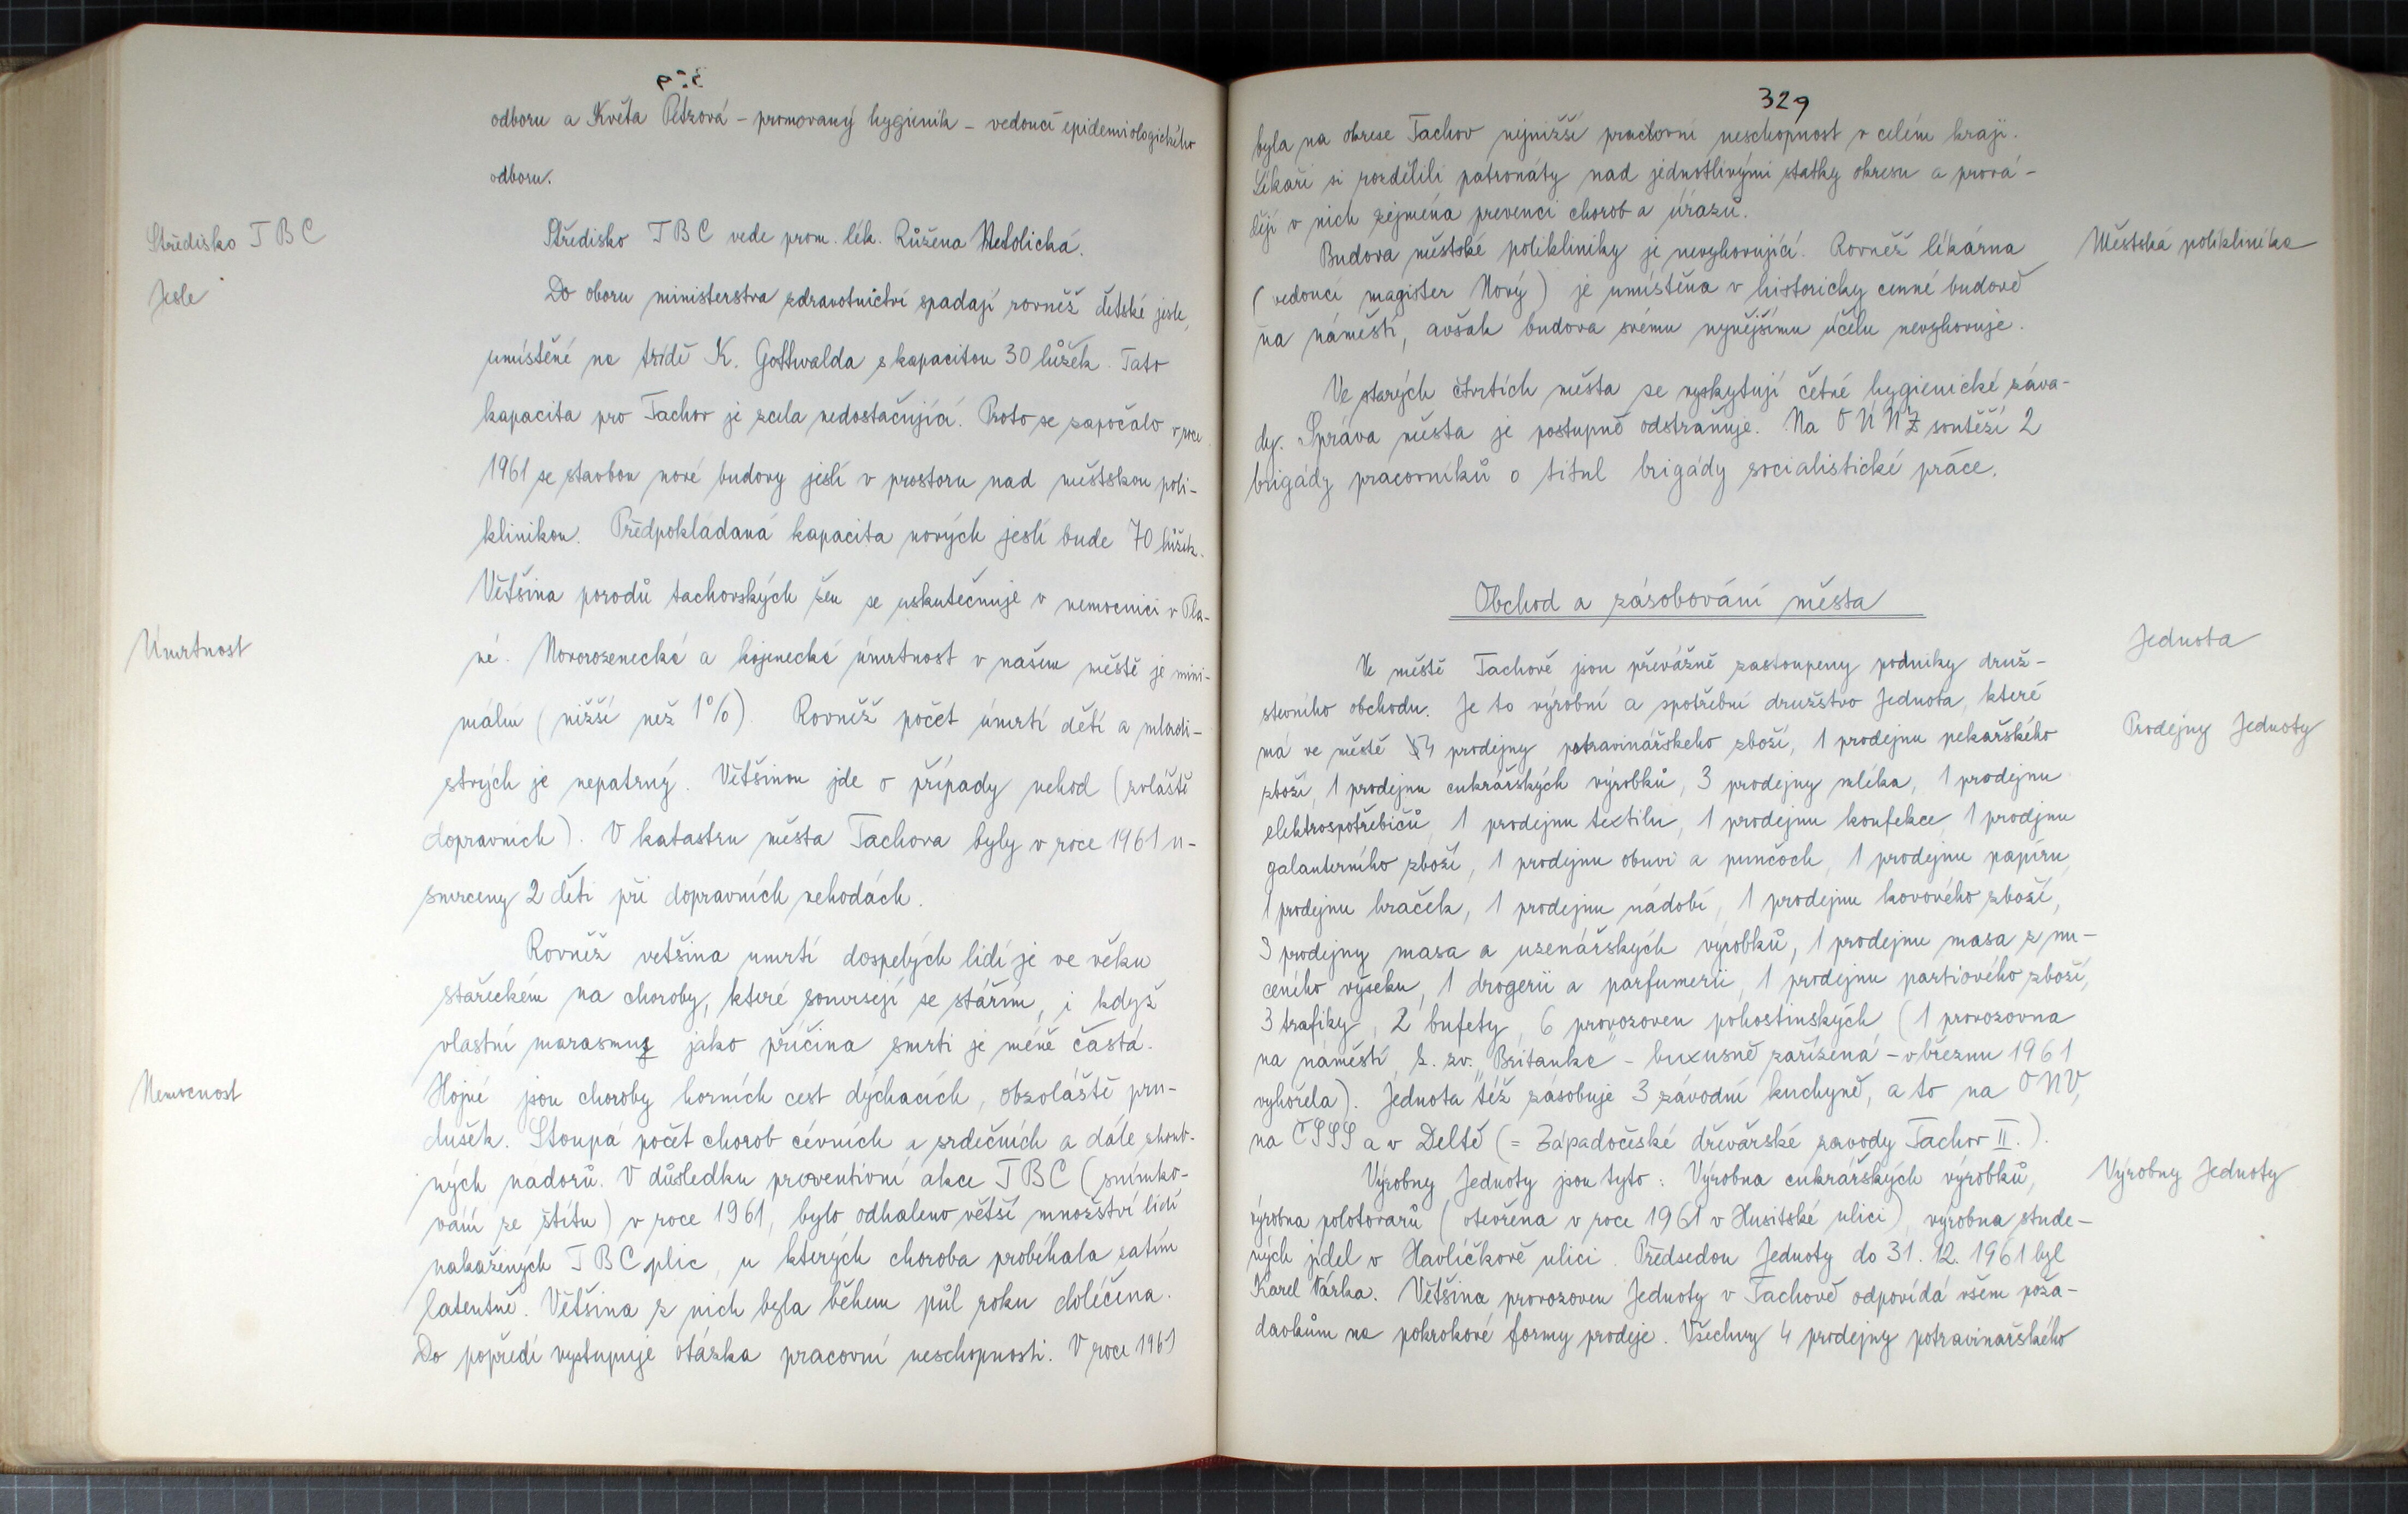 odboru a Květa Petrová - promovaný hygienik - vedoucí epidemiologického
odboru.
Středisko TBC
Středisko TBC vede prom. lék. Růžena Netolická.
Jesle
Do oboru ministerstva zdravotnictví spadají rovněž dětské jesle,
umístěné na třídě K. Gottwalda s kapacitou 30 lůžek. Tato
kapacita pro Tachov je zcela nedostačující. Proto se započalo v roce
1961 se stavbou nové budovy jeslí v prostoru nad městskou poli-
klinikou. Předpokládaná kapacita nových jeslí bude 70 lůžek.
Většina porodů tachovských žen se uskutečnuje v nemocnici v Pla-
Úmrtnost
né. Novorozenecká a kojenecká úmrtnost v našem městě je mini-
mální (nižší než 1%). Rovněž počet úmrtí dětí a mladi-
stvých je nepatrný. Většinou jde o případy nehod (zvláště
dopravních). V katastru města Tachova byly v roce 1961 u-
smrceny 2 děti při dopravních nehodách.
Rovněž vetšina umrtí dospělých lidí je ve věku
stařeckém na choroby, které souvisejí se stářím, i když
vlastní marasmus jako příčina smrti je méně častá.
Nemocnost
Hojné jsou choroby horních cest dýchacích, obzvláště prů-
dušek. Stoupá počet chorob cévních a srdečních a dále zhoub-
ných nádorů. V důsledku preventivní akce TBC (snímko-
vání ze štítu) v roce 1961, bylo odhaleno větší množství lidí
nakažených TBC plic, u kterých choroba probíhala zatím
latentně. Většina z nich byla během půl roku doléčena.
Do popředí vystupuje otázka pracovní neschopnosti. V roce 1961
329
byla na okrese Tachov nejnižší pracovní neschopnost v celém kraji.
Lékaři si rozdělili patronáty nad jednotlivými statky okresu a prová-
dějí v nich zejména prevenci chorob a úrazů.
Městská poliklinika
Budova městské polikliniky je nevyhovující. Rovněž lékárna
(vedoucí magister Nový) je umístěna v historicky cenné budově
na náměstí, avšak budova svému nynějšímu účelu nevyhovuje.
Ve starých čtvrtích města se vyskytují četné hygienické záva-
dy. Správa města je postupně odstraňuje. Na OÚNZ soutěží 2
brigády pracovníků o titul brigády socialistické práce.
Obchod a zásobování města
Jednota
Ve městě Tachově jsou převážně zastoupeny podniky druž-
stevního obchodu. Je to výrobní a spotřební družstvo Jednota, které
Prodejny Jednoty
má ve městě 4 prodejny potravinářského zboží, 1 prodejnu pekařského
zboží, 1 prodejnu cukrářských výrobků, 3 prodejny mléka, 1 prodejnu
elektrospotřebičů, 1 prodejnu textilu, 1 prodejnu konfekce, 1 prodejnu
galanterního zboží, 1 prodejnu obuvi a punčoch, 1 prodejnu papíru,
1 prodejnu hraček, 1 prodejnu nádobí, 1 prodejnu kovového zboží,
3 prodejny masa a uzenářských výrobků, 1 prodejnu masa z nu-
ceného výseku, 1 drogerii a parfumerii, 1 prodejnu partiového zboží,
3 trafiky, 2 bufety, 6 provozoven pohostinských (1 provozovna
na náměstí, t. zv. „Britanka" - luxusně zařízená - v březnu 1961
vyhořela). Jednota též zásobuje 3 závodní kuchyně, a to na ONV,
na ČSSS a v Deltě (= Západočeské dřevařské zavody Tachov II.).
Výrobny Jednoty
Výrobny Jednoty jsou tyto: Výrobna cukrářských výrobků,
výrobna polotovarů (otevřena v roce 1961 v Husitské ulici), výrobna stude-
ných jídel v Havlíčkově ulici. Předsedou Jednoty do 31. 12. 1961 byl
Karel Várka. Většina provozoven Jednoty v Tachově odpovídá všem poža-
davkům na pokrokové formy prodeje. Všechny 4 prodejny potravinařského